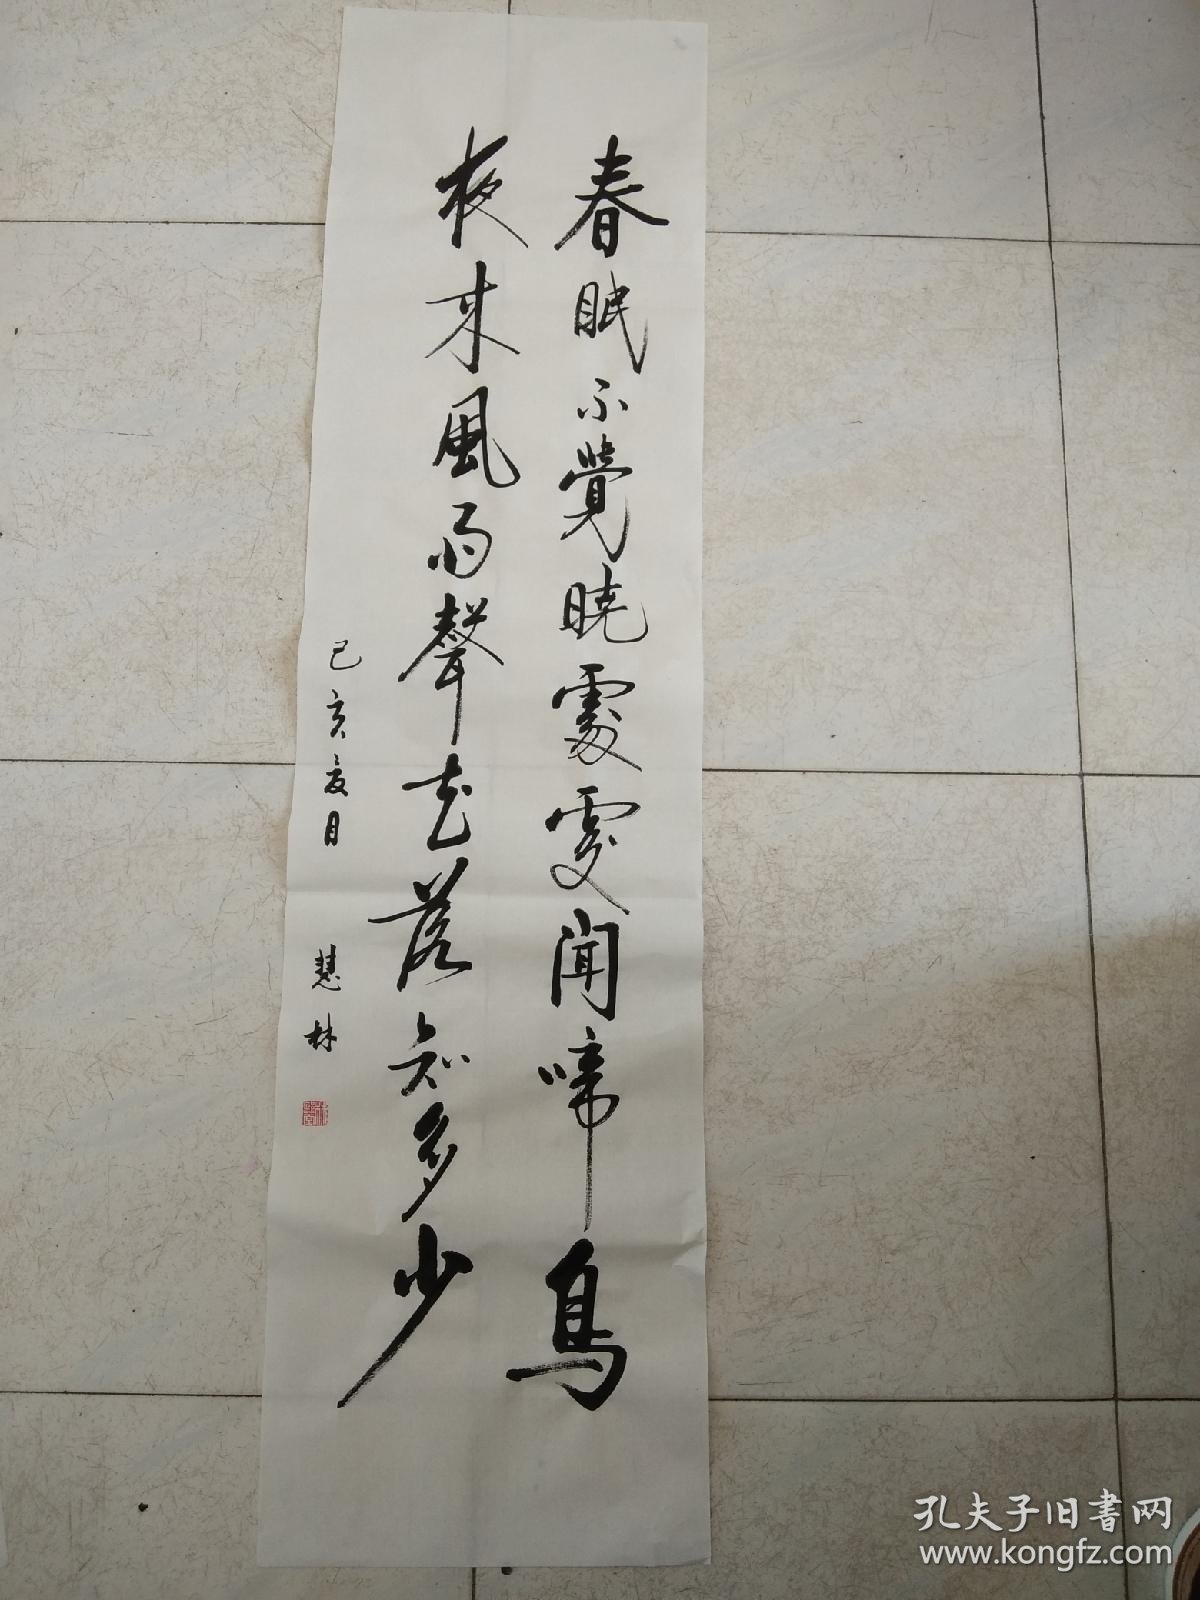 春眠不覺曉處處聞啼鳥
夜來風雨聲花落知多少
己亥夏月
慧林
孔夫子旧書网
www.kongfz.com